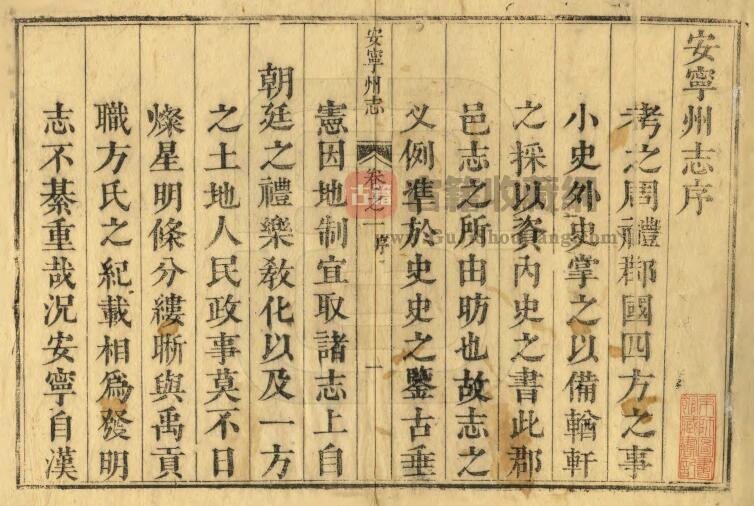 安寧州志序
考之周禮郡國四方之事
小史外史掌之以備輶軒
之採以資內史之書此郡
邑志之所由昉也故志之
义例準於史史之鑒古垂
安寧州志 卷之一 序 一
憲因地制宜取諸志上自
朝廷之禮樂敎化以及一方
之土地人民政事莫不日
燦星明條分縷晰與禹貢
職方氏之紀載相為發明
志不綦重哉況安寧自漢
古籍